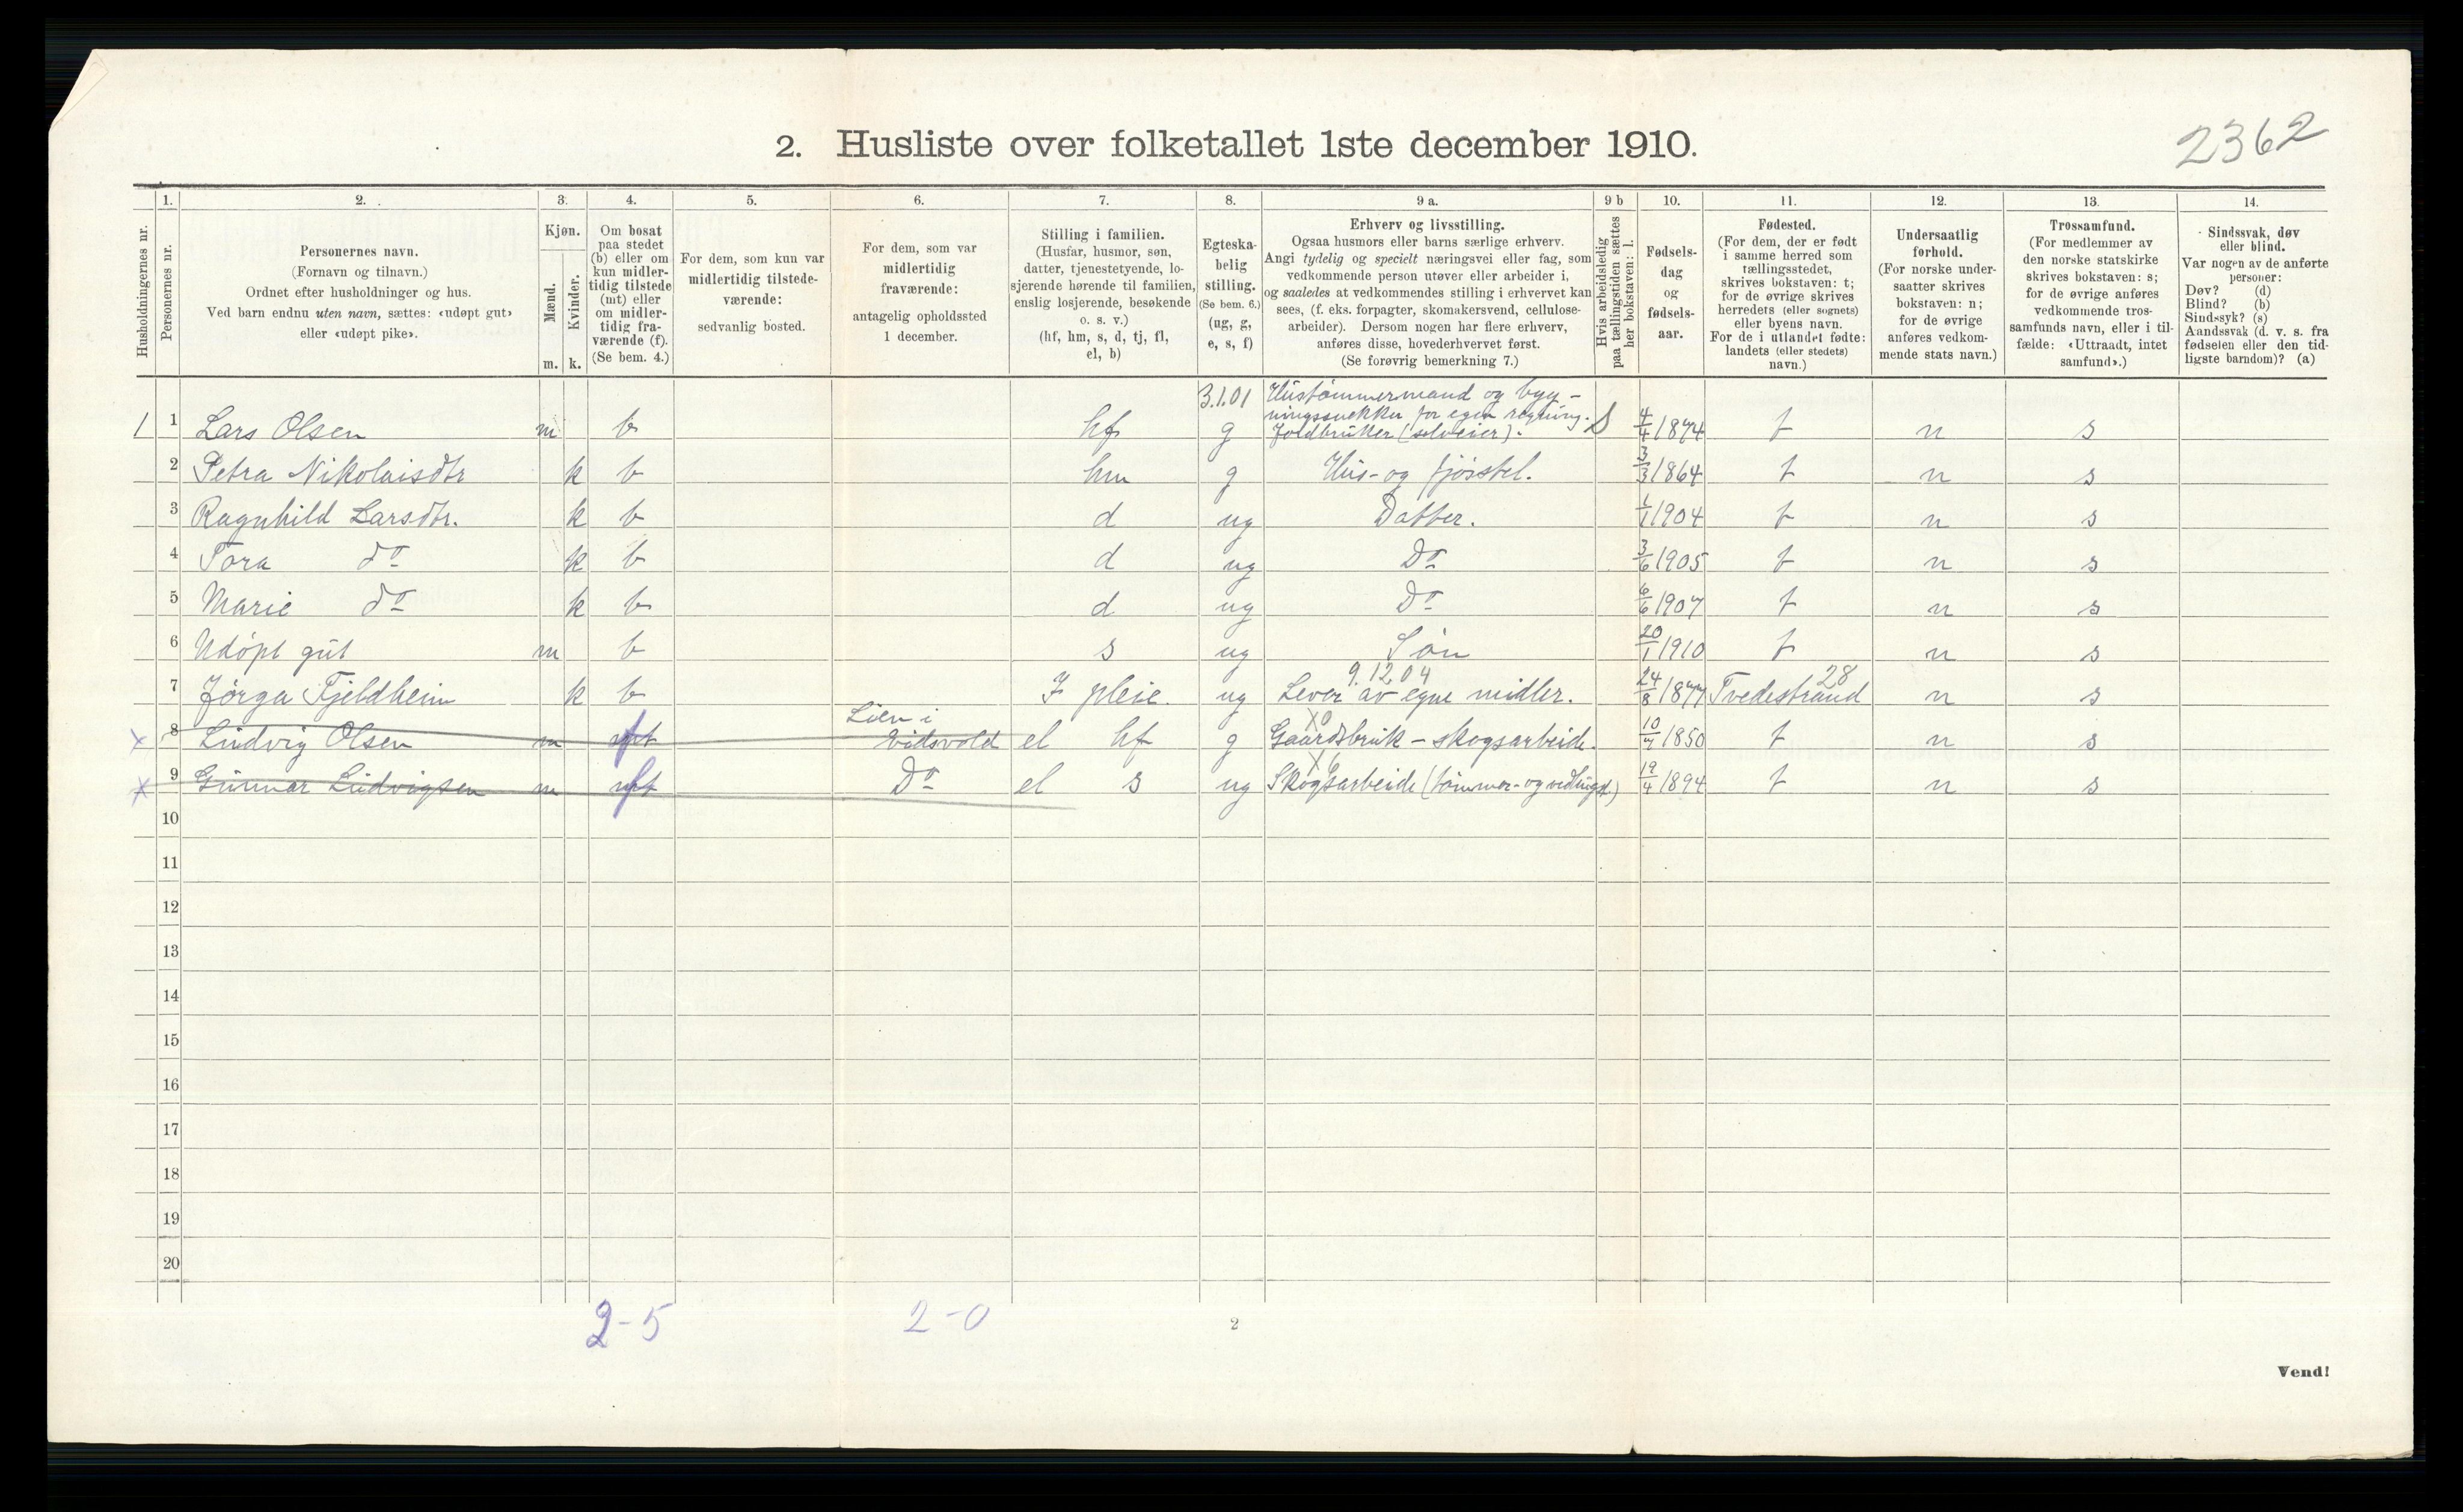 2362
2. Husliste over folketallet 1ste december 1910.
1. 2. 3. 4. 5. 6. 7. 8. 9 a. 9 b 10. 11. 12. 13. 14.
Husholdningernes nr.
Personernes nr.
Personernes navn.
(Fornavn og tilnavn.)
Ordnet efter husholdninger og hus.
Ved barn endnu uten navn, sættes: «udøpt gut»
eller «udøpt pike».
Kjøn.
Mænd.
Kvinder.
m. k.
Om bosat
paa stedet
(b) eller om
kun midler-
tidig tilstede
(mt) eller
om midler-
tidig fra-
værende (f).
(Se bem. 4.)
For dem, som kun var
midlertidig tilstede-
værende:
sedvanlig bosted.
For dem, som var
midlertidig
fraværende:
antagelig opholdssted
1 december.
Stilling i familien.
(Husfar, husmor, søn,
datter, tjenestetyende, lo-
sjerende hørende til familien,
enslig losjerende, besøkende
o. s. v.)
(hf, hm, s, d, tj, fl,
el, b)
Egteska-
belig
stilling.
(Se bem. 6.)
(ug, g,
e, s, f)
Erhverv og livsstilling.
Ogsaa husmors eller barns særlige erhverv.
Angi tydelig og specielt næringsvei eller fag, som
vedkommende person utøver eller arbeider i,
og saaledes at vedkommendes stilling i erhvervet kan
sees, (f. eks. forpagter, skomakersvend, cellulose-
arbeider). Dersom nogen har flere erhverv,
anføres disse, hovederhvervet først.
(Se forøvrig bemerkning 7.)
Hvis arbeidsledig
paa tællingstiden sættes
her bokstaven: l.
Fødsels-
dag
og
fødsels-
aar.
Fødested.
(For dem, der er født
i samme herred som
tællingsstedet,
skrives bokstaven: t;
for de øvrige skrives
herredets (eller sognets)
eller byens navn.
For de i utlandet fødte:
landets (eller stedets)
navn.)
Undersaatlig
forhold.
(For norske under-
saatter skrives
bokstaven: n;
for de øvrige
anføres vedkom-
mende stats navn.)
Trossamfund.
(For medlemmer av
den norske statskirke
skrives bokstaven: s;
for de øvrige anføres
vedkommende tros-
samfunds navn, eller i til-
fælde: «Uttraadt, intet
samfund».)
Sindssvak, døv
eller blind.
Var nogen av de anførte
personer:
Døv? (d)
Blind? (b)
Sindssyk? (s)
Aandssvak (d. v. s. fra
fødselen eller den tid-
ligste barndom)? (a)
3.1.01 Hustømmermand og byg-
ningssnekker for egen regning.
1 1 Lars Olsen m b hf g Jordbruker (selveier). 4/4 1874 t n s
2 Petra Nikolaisdtr k b hm g Hus- og fjøsstel. 3/3 1864 t n s
3 Ragnhild Larsdtr. k b d ug Datter. 1/1 1904 t n s
4 Tora do k b d ug Do 3/6 1905 t n s
5 Marie do k b d ug Do 6/6 1907 t n s
6 Udöpt gut m b s ug Sön 20/1 1910 t n s
9.12.04 28
7 Jörga Fjeldheim k b I pleie. ug Lever av egne midler. 24/8 1877 Tvedestrand n s
Lien i
x 8 Ludvig Olsen m f Eidsvold el hf g Gaardsbruk - skogsarbeide. 10/7 1850 t n s
x 9 Gunnar Ludvigsen m f Do el s ug Skogsarbeide (tömmer- og vedhugst) 19/4 1894 t n s
10
11
12
13
14
15
16
17
18
19
20
2-5 2-0
2
Vend!